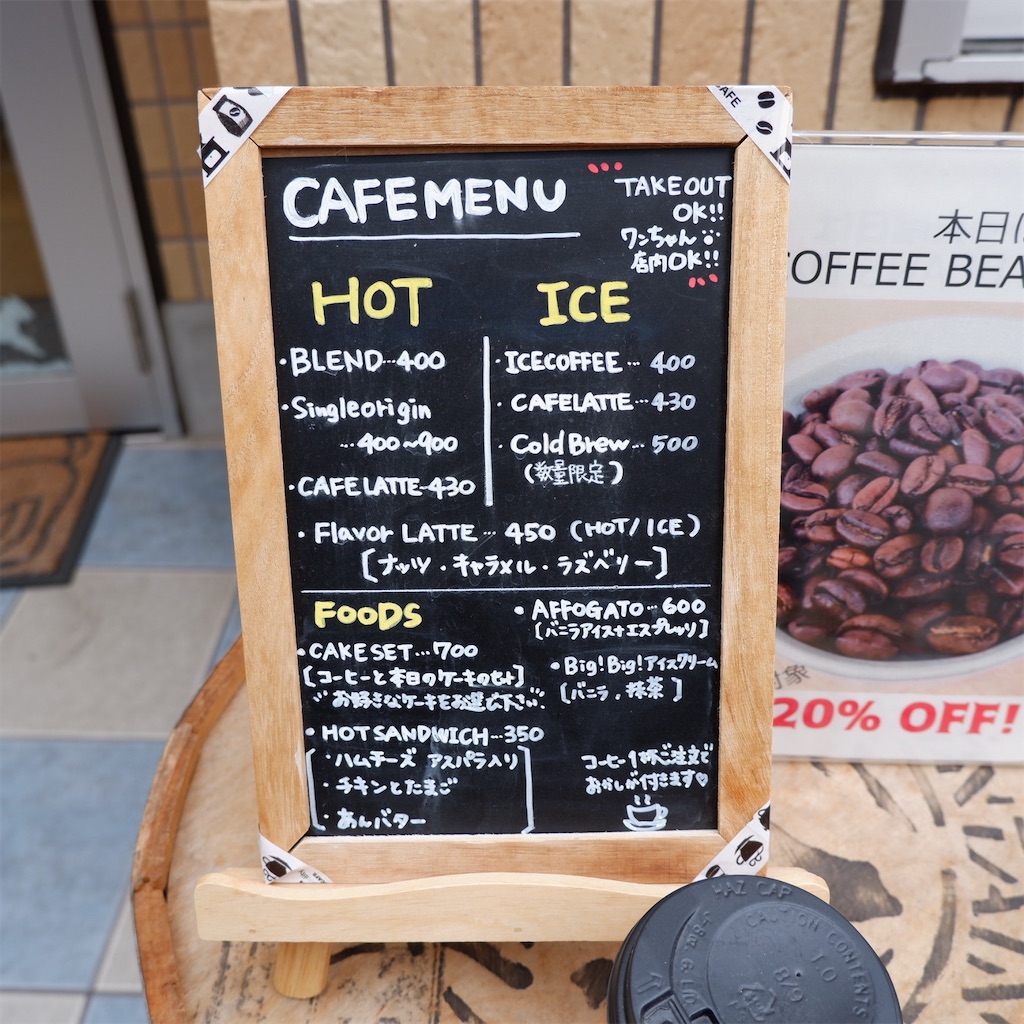 CAFE MENU
TAKE OUT
OK!!
ワンちゃん
店内OK!!
HOT
・BLEND…400
・Single origin
…400~900
・CAFE LATTE…430
ICE
・ICE COFFEE…400
・CAFE LATTE…430
・Cold Brew…500
(数量限定)
・Flavor LATTE…450 (HOT/ICE)
[ナッツ・キャラメル・ラズベリー]
FOODS
・CAKE SET…700
[コーヒーと本日のケーキのセット]
お好きなケーキをお選び下さい
・HOT SANDWICH…350
・ハムチーズ アスパラ入り
・チキンとたまご
・あんバター
・AFFOGATO…600
[バニラアイス+エスプレッソ]
・Big!Big!アイスクリーム
[バニラ・抹茶]
コーヒー1杯ご注文で
おかしが付きます♡
CAFE
本日
COFFEE BEA
対象
20% OFF!
HAZ CAP
CAUTION CONTENTS